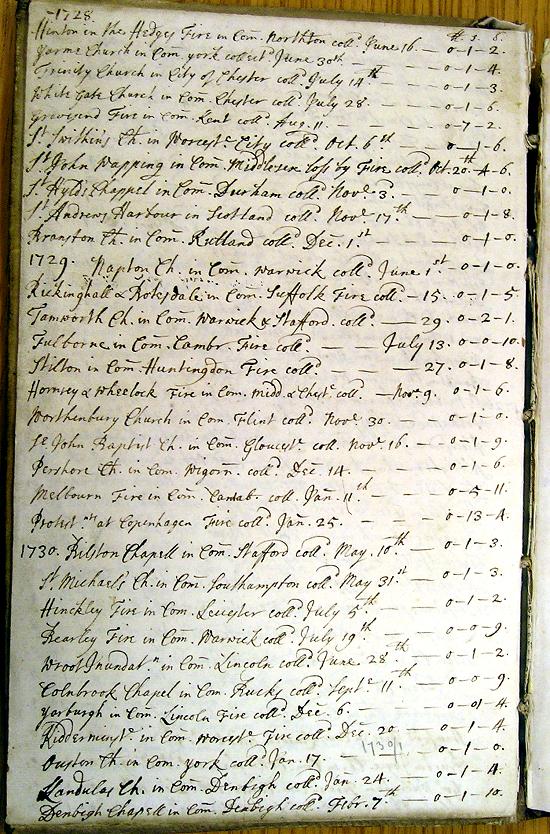 -1728.
# s. d.
Hinton in the Hedges Fire in Com. Northton coll. June 16. — 0-1-2.
Yarme Church in Com. york collect June 30th — 0-1-4.
Trinity Church in City of Chester coll. July 14th — 0-1-3.
White Gate Church in Com. Chester coll. July 28 — 0-1-6.
Gravesend Fire in Com. Kent coll. Aug. 11. — 0-7-2.
St. Swithin's Ch. in Worcestr. City coll. Oct. 6th — 0-1-6.
St. John Wapping in Com. Middlesex loss by Fire coll. Oct. 20 - 4-6.
St. Hyld's Chappel in Com. Durham coll. Nov. 3. 0-1-0.
St. Andrews Harbour in Scotland coll. Nov. 17th — 0-1-8.
Branston Ch. in Com. Rutland coll. Dec. 1st — 0-1-0.
1729. Napton Ch. in Com. Warwick coll. June 1st — 0-1-0.
Rickinghall & Botesdale in Com. Suffolk Fire coll. — 15. 0-1-5.
Tamworth Ch. in Com. Warwick & Stafford. coll. — 29. 0-2-1.
Fulborne in Com. Cambr. Fire coll. — — July 13. 0-0-10.
Stilton in Com. Huntingdon Fire coll. — — 27. 0-1-8.
Hornsey & Wheelock Fire in Com. Midd. & Chest. coll. — Nov. 9. 0-1-6.
Worthenbury Church in Com. Flint coll. Nov. 30. — — 0-1-0.
St. John Baptist Ch. in Com. Gloucestr. coll. Nov. 16 — — 0-1-9.
Pershore Ch. in Com. Wigorn. coll. Dec. 14. — — 0-1-6.
Melbourn Fire in Com. Cantab. coll. Jan. 11th — — 0-5-11.
Protest.nts at Copenhagen Fire coll. Jan. 25. — — 0-13-4.
1730. Bilston Chapell in Com. Stafford coll. May. 10th — 0-1-3.
St. Michaels Ch. in Com. Southampton coll. May 31st — 0-1-3.
Hinckley Fire in Com. Leicester coll. July 5th — 0-1-2.
Bearley Fire in Com. Warwick coll. July 19th — — 0-0-9.
Wroot Inundat.n in Com. Lincoln coll. June. 28th — 0-1-2.
Colnbrook Chapel in Com. Bucks coll. Septr. 11th — 0-0-9.
Yarburgh in Com. Lincoln Fire coll. Dec. 6. — — 0-01-4.
Kidderminstr. in Com. Worcestr. Fire coll. Dec. 20 — 0-1-4.
1730/1
Ouston Ch. in Com. york coll. Jan. 17. — — 0-1-0.
Llandulas Ch. in Com. Denbigh coll. Jan. 24. — — 0-1-4.
Denbigh Chapell in Com. Denbigh coll. Febr. 7th — — 0-1-10.